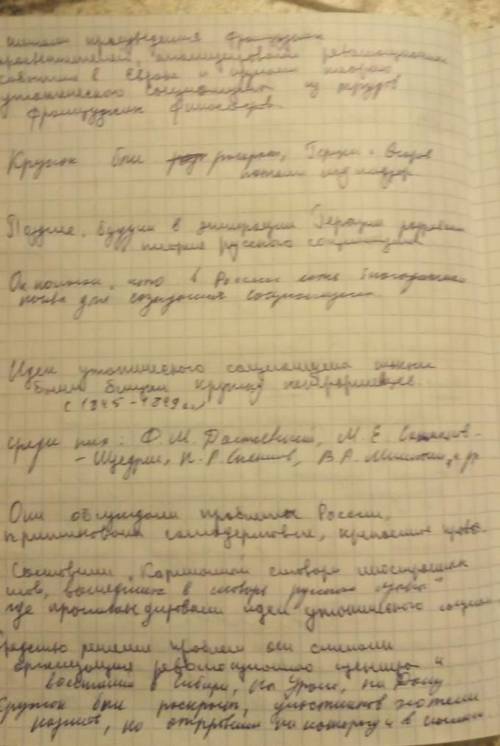 читали произведения французских
просветителей, анализировали революционные
события в Европе и изучали теорию
утопического социализма из трудов
французских философов.
Кружок был раскрыт, Герцен и Огарёв
попали под надзор.
Позднее, будучи в эмиграции Герцен развивал
теорию русского социализма
Он полагал, что в России есть благодатная
почва для создания социализма.
Идеи утопического социализма также
были близки кружку петрашевцев.
(1845-1849 гг.)
среди них: Ф.М. Достоевский, М.Е. Салтыков-
-Щедрин, Н.А. Спешнев, В.А. Милютин, и др
Они обсуждали проблемы России,
самодержавие, крепостное право.
Составили "Карманный словарь иностранных
слов, вошедших в словарь русского языка"
где пропагандировали идеи утопического социал
Средством решения проблем они считали
организацию революционного центра и
восстания в Сибири, на Урале, на Дону
Кружок был раскрыт, участников хотели
казнить, но отправили на каторгу и в